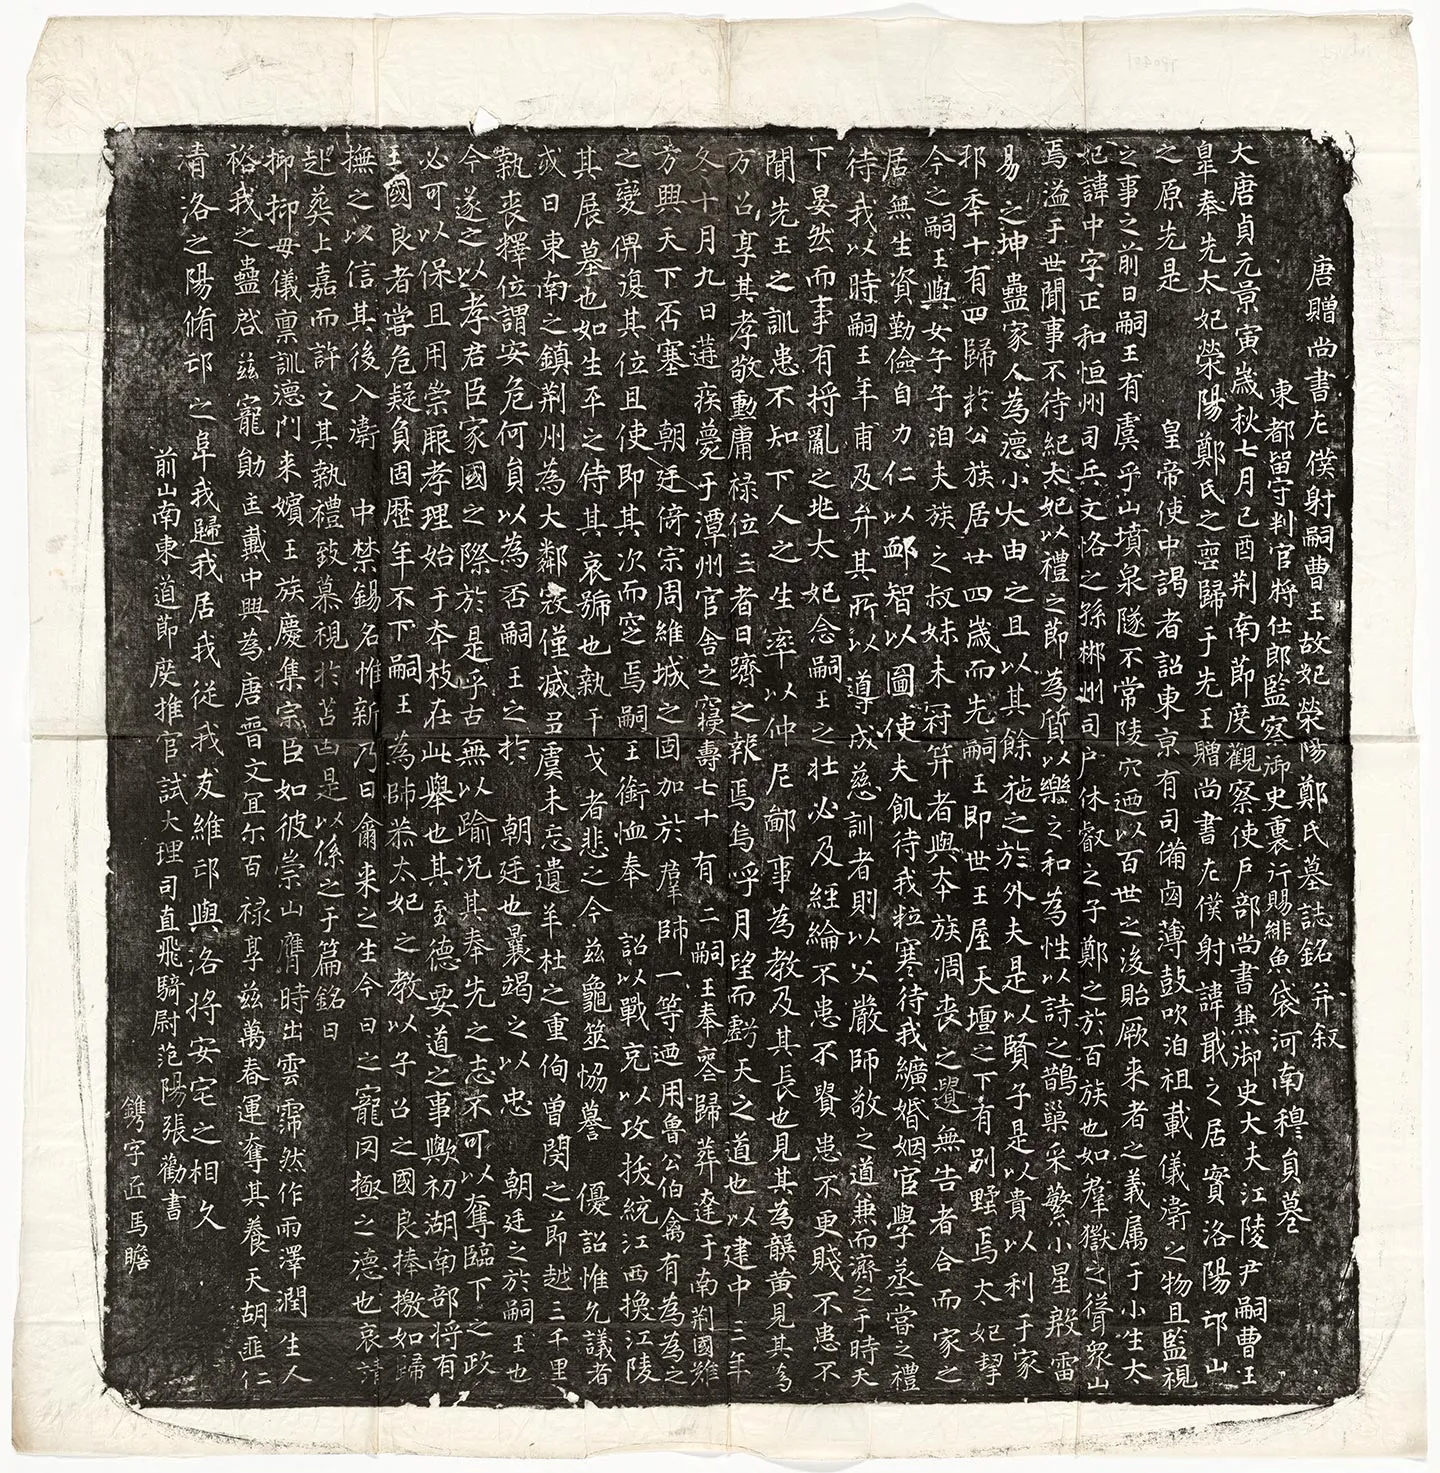 唐贈尚書左僕射嗣曹王故妃滎陽鄭氏墓誌銘并叙
東都留守判官將仕郎監察御史裏行賜緋魚袋河南穆員纂
大唐貞元景寅歲秋七月己酉荆南節度觀察使戶部尚書兼御史大夫江陵尹嗣曹王
臯奉先太妃滎陽鄭氏之喪歸于先王贈尚書左僕射諱戢之居實洛陽邙山
之原先是 皇帝使中謁者詔東京有司備鹵薄鼓吹洎祖載儀衛之物且監視
之事之前日嗣王有虞乎山墳泉隧不常陵穴迺以百世之後貽厥来者之義属于小生太
妃諱中字正和恒州司兵文恪之孫郴州司戶休叡之子鄭之於百族也如羣獄之聳衆山
焉溢于世聞事不待紀太妃以禮之節為質以樂之和為性以詩之鵲巢采蘩小星殷雷
易之坤蠱家人為德小大由之且以其餘施之於外夫是以賢子是以貴以利于家
邦秊十有四歸於公族居廿四歲而先嗣王即世王屋天壇之下有別墅焉太妃挈
今之嗣王與女子子洎夫族之叔妹未冠笄者與夲族凋喪之遺無告者合而家之
居無生資勤儉自力仁以卹智以圖使夫飢待我粒寒待我纊婚姻宦學蒸嘗之禮
待我以時嗣王年甫及弁其所以導成慈訓者則以父嚴師敬之道兼而濟之于時天
下晏然而事有将亂之兆太妃念嗣王之壯必及經綸不患不貲患不更賤不患不
聞先王之訓患不知下人之生率以仲尼鄙事為教及其長也見其為韻黄見其為
方召享其孝敬勳庸禄位三者日躋之報焉烏乎月望而虧天之道也以建中三年
冬十月九日遘疾薨于潭州官舍之寝壽七十有二嗣王奉喪歸葬達于南荆國難
方興天下否塞 朝廷倚宗周維城之固加於羣師一等迺用魯公伯禽有為為之
之變俾復其位且使即其次而窆焉嗣王銜恤奉 詔以戰克以攻拔統江西換江陵
其展墓也如生平之侍其哀號也執干戈者悲之今茲龜筮恊謩 優詔惟允議者
或曰東南之鎮荆州為大鄰寇僅滅丑虞未忘遺羊杜之重佝曽閔之節越三千里
執喪擇位謂安危何員以為否嗣王之於 朝廷也曩竭之以忠 朝廷之於嗣王也
今遂之以孝君臣家國之際於是乎古無以踰况其奉先之志不可以奪臨下之政
必可以保且用崇服孝理始于夲枝在此舉也其至德要道之事歟初湖南部将有
王國良者嘗危疑負固歷年不下嗣王為師恭太妃之教以子召之國良捧檄如歸
撫之以信其後入衛 中禁錫名惟新乃曰翕来之生今日之寵罔極之德也哀請
赴葬上嘉而許之其執禮致慕視於苫凷是以係之于篇銘曰
抑抑母儀稟訓德門来嬪王族慶集宗臣如彼崇山膺時出雲霈然作雨澤潤生人
裕我之蠱啓茲寵勛匡戴中興為唐晋文宜尒百禄享茲萬春運奪其養天胡匪仁
清洛之陽脩邙之阜我歸我居我從我友維邙與洛将安宅之相久
前山南東道節度推官試大理司直飛騎尉范陽張勸書
鐫字匠馬瞻